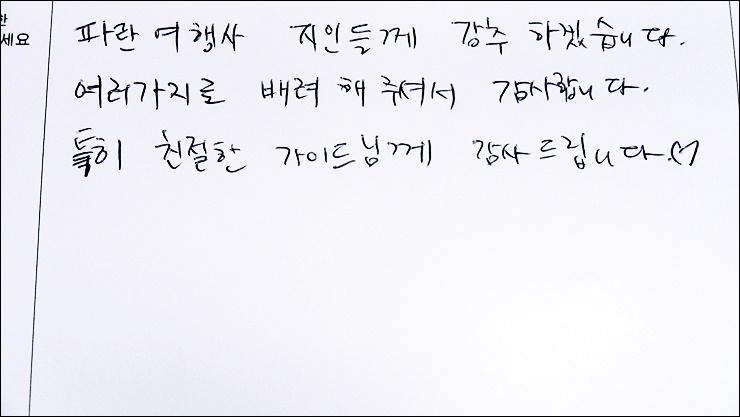 한
세요
파란여행사 지인들께 강추 하겠습니다.
여러가지로 배려 해 주셔서 감사합니다.
특히 친절한 가이드님께 감사드립니다.♡